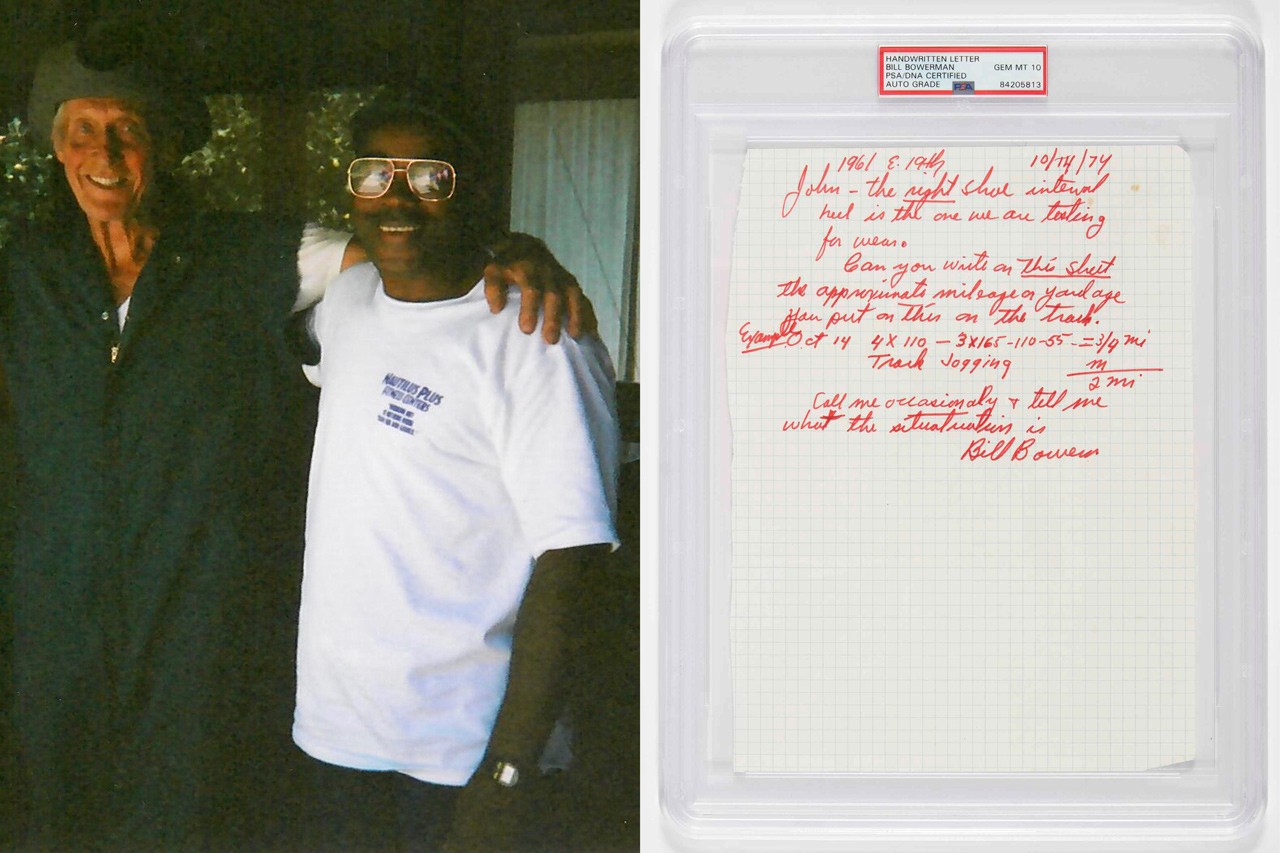 NAUTILUS PLUS
FITNESS CENTERS
HANDWRITTEN LETTER
BILL BOWERMAN GEM MT 10
PSA/DNA CERTIFIED
AUTO GRADE PSA 84205813
1961 E. 19th 10/14/74
John - the right shoe internal
heel is the one we are testing
for wear.
Can you write on this sheet
the approximate mileage or yardage
you put on this on the track.
Example Oct 14 4 X 110 - 3X165-110-55 - = 3/4 mi
Track Jogging m
2 mi
Call me occasionaly & tell me
what the situatuation is
Bill Bowerm